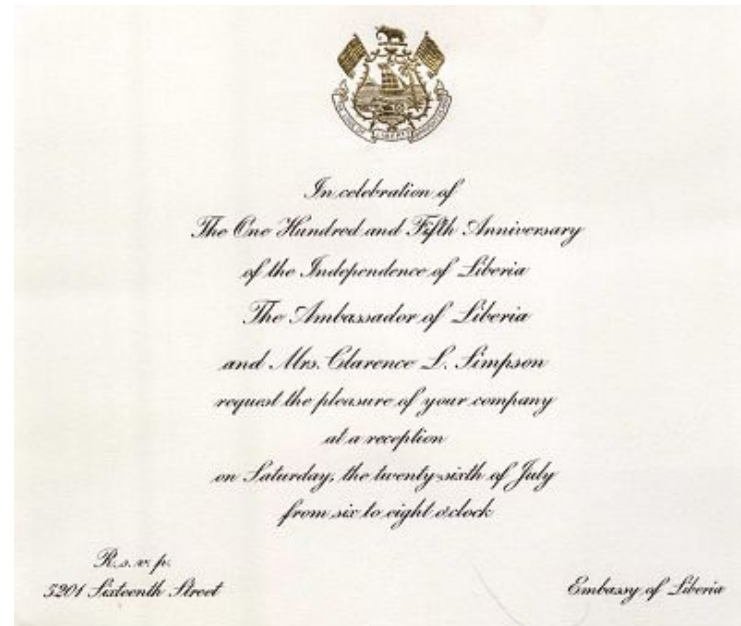 In celebration of
The One Hundred and Fifth Anniversary
of the Independence of Liberia
The Ambassador of Liberia
and Mrs. Clarence L. Simpson
request the pleasure of your company
at a reception
on Saturday, the twenty-sixth of July
from six to eight o'clock
R.s.v.p.
5201 Sixteenth Street
Embassy of Liberia